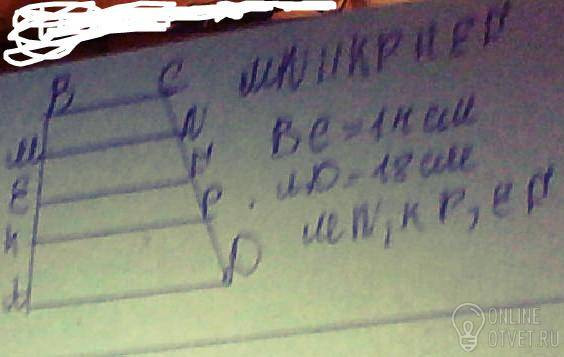 B C
MN || KP || EП
M N
BC = 14 см
E П
AD = 18 см
K P
MN, KP, EП
D
A
ONLINE
OTVET.RU